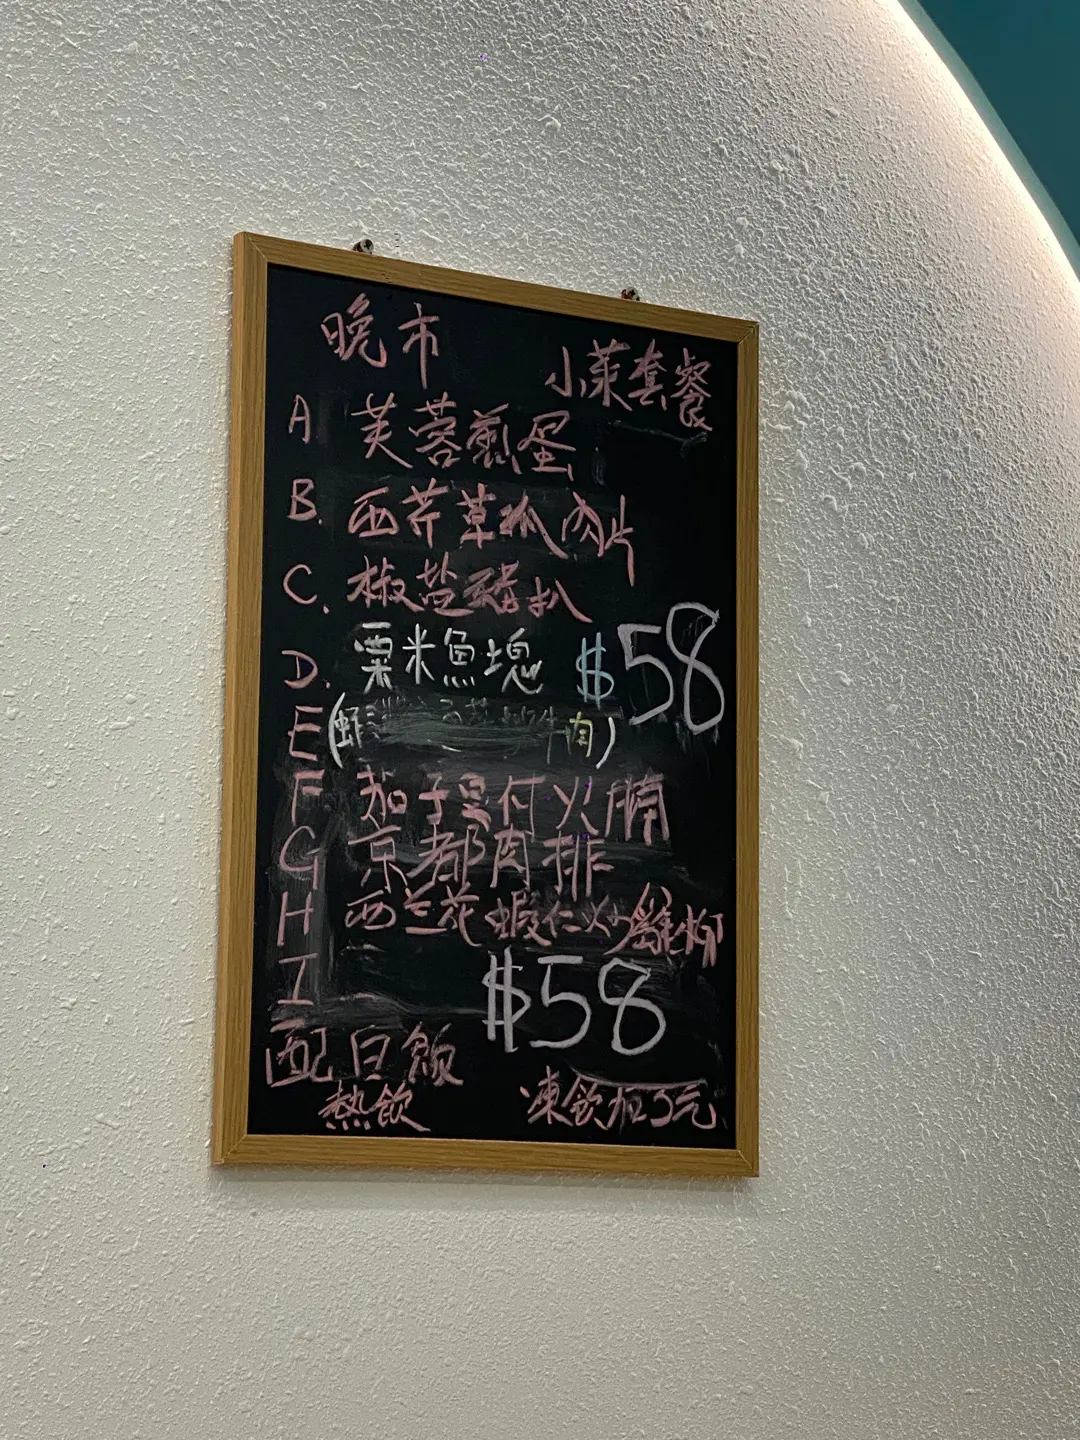 晚市
小菜套餐
A 芙蓉煎蛋
B. 西芹草菰肉片
C. 椒盐豬扒
D. 粟米魚塊 $58
E (蝦 肉)
F 茄子豆付火腩
G 京都肉排
H 西兰花蝦仁炒雞柳
I $58
配白飯
熱飲 凍飲加3元